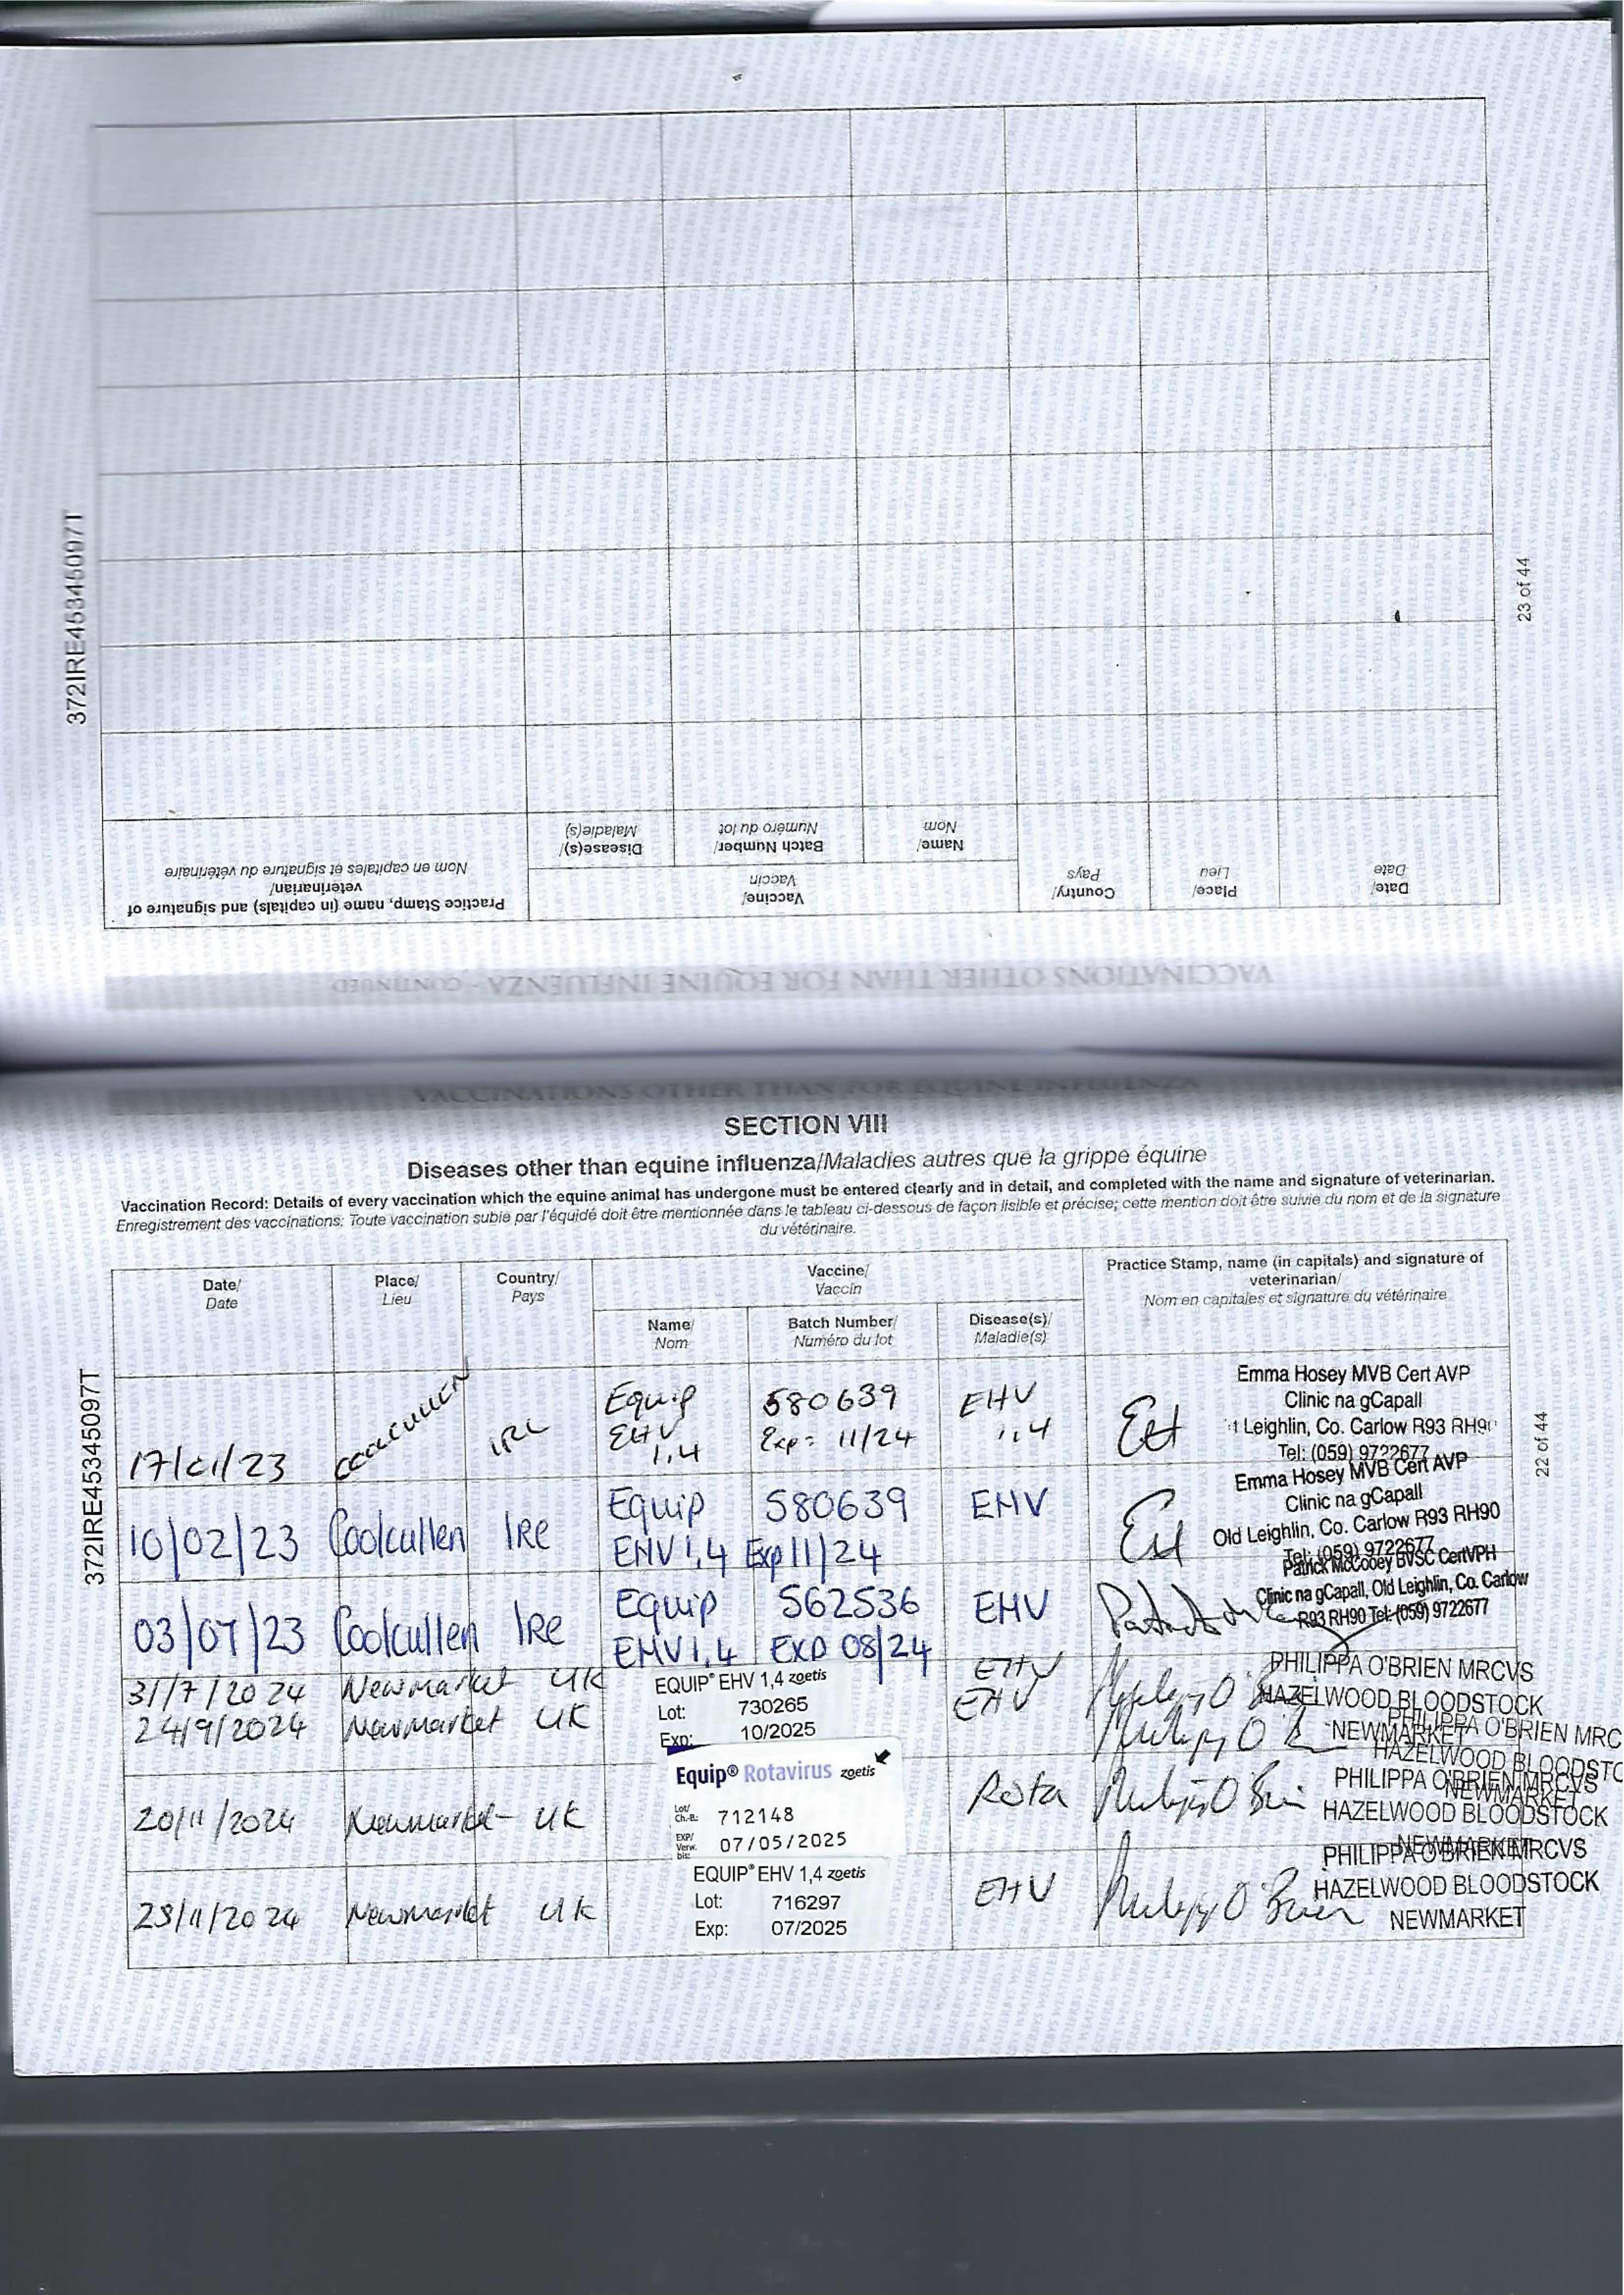 372IRE45345097T
23 of 44
VACCINATIONS OTHER THAN FOR EQUINE INFLUENZA - CONTINUED
Date/
Date
Place/
Lieu
Country/
Pays
Vaccine/
Vaccin
Practice Stamp, name (in capitals) and signature of
veterinarian/
Nom en capitales et signature du vétérinaire
Name/
Nom
Batch Number/
Numéro du lot
Disease(s)/
Maladie(s)
VACCINATIONS OTHER THAN FOR EQUINE INFLUENZA
SECTION VIII
Diseases other than equine influenza/Maladies autres que la grippe équine
Vaccination Record: Details of every vaccination which the equine animal has undergone must be entered clearly and in detail, and completed with the name and signature of veterinarian.
Enregistrement des vaccinations: Toute vaccination subie par l'équidé doit être mentionnée dans le tableau ci-dessous de façon lisible et précise; cette mention doit être suivie du nom et de la signature
du vétérinaire.
372IRE45345097T
22 of 44
Date/
Date
Place/
Lieu
Country/
Pays
Vaccine/
Vaccin
Practice Stamp, name (in capitals) and signature of
veterinarian/
Nom en capitales et signature du vétérinaire
Name/
Nom
Batch Number/
Numéro du lot
Disease(s)/
Maladie(s)
17/01/23 COOLCULLEN IRL
Equip
EHV
1,4
580639
Exp= 11/24
EHV
1,4
Emma Hosey MVB Cert AVP
Clinic na gCapall
Leighlin, Co. Carlow R93 RH90
Tel: (059) 9722677
10/02/23 Coolcullen Ire
Equip 580639 EHV
EHV 1,4 Exp 11/24
Emma Hosey MVB Cert AVP
Clinic na gCapall
Old Leighlin, Co. Carlow R93 RH90
Tel: (059) 9722677
03/07/23 Coolcullen Ire
Equip 562536 EHV
EHV 1,4 EXP 08/24
Patrick McCooey BVSC CertVPH
Clinic na gCapall, Old Leighlin, Co. Carlow
R93 RH90 Tel: (059) 9722677
31/7/2024 Newmarket UK
EHV
24/9/2024 Newmarket UK
EHV
EQUIP® EHV 1,4 zoetis
Lot: 730265
Exp: 10/2025
PHILIPPA O'BRIEN MRCVS
HAZELWOOD BLOODSTOCK
NEWMARKET
PHILIPPA O'BRIEN MRC
HAZELWOOD BLOODSTO
NEWMARKET
20/11/2024 Newmarket UK
Equip® Rotavirus zoetis
Lot/
Ch.-B.: 712148
EXP/
Verw.
bis: 07/05/2025
Rota
PHILIPPA O'BRIEN MRCVS
HAZELWOOD BLOODSTOCK
NEWMARKET
Newmarket UK
EQUIP® EHV 1,4 zoetis
Lot: 716297
Exp: 07/2025
EHV
PHILIPPA O'BRIEN MRCVS
HAZELWOOD BLOODSTOCK
NEWMARKET